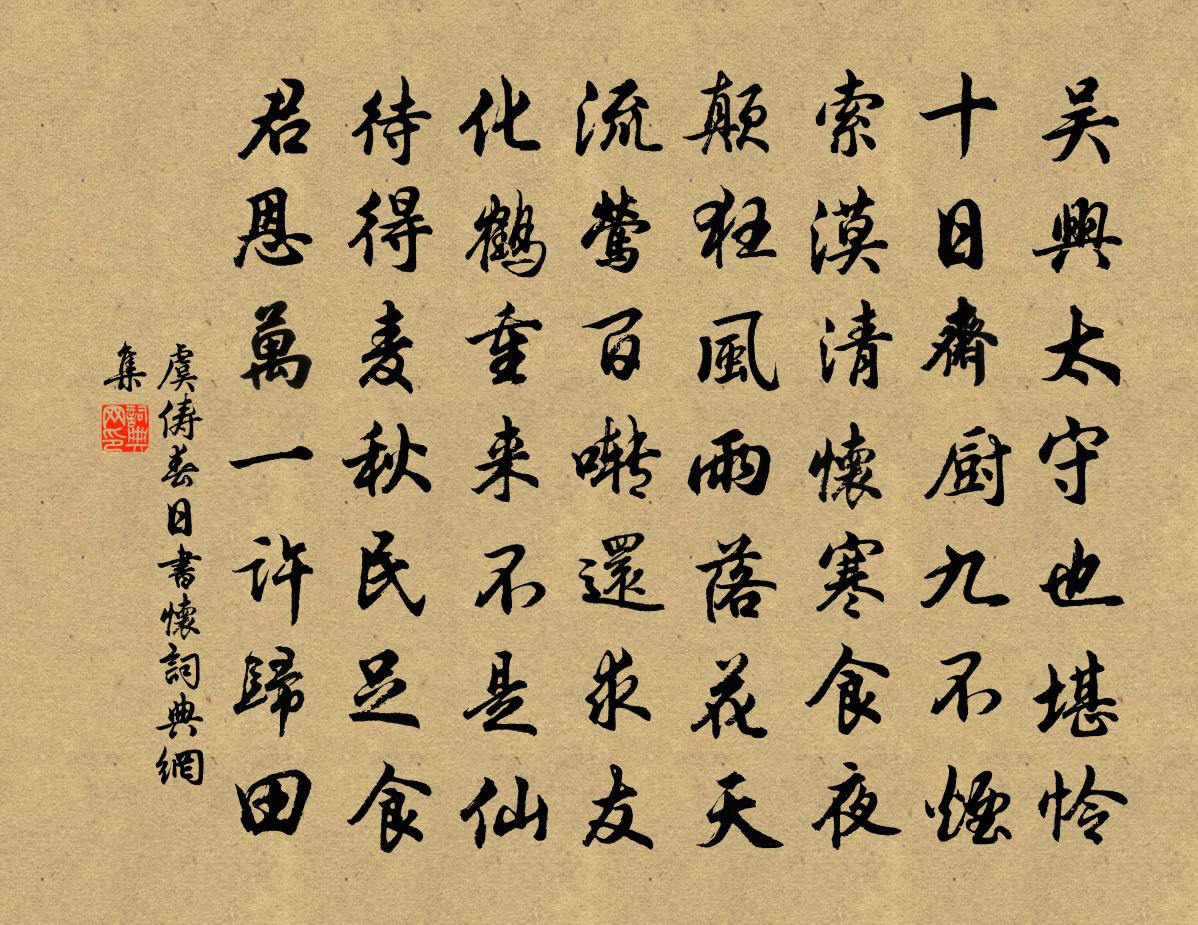 吴興太守也堪怜
十日齋厨九不煙
索漠清懷寒食夜
颠狂風雨落花天
流莺百啭還求友
化鶴重来不是仙
待得麦秋民足食
君恩萬一許歸田
虞俦春日書懷詞典網
集
詞典网印